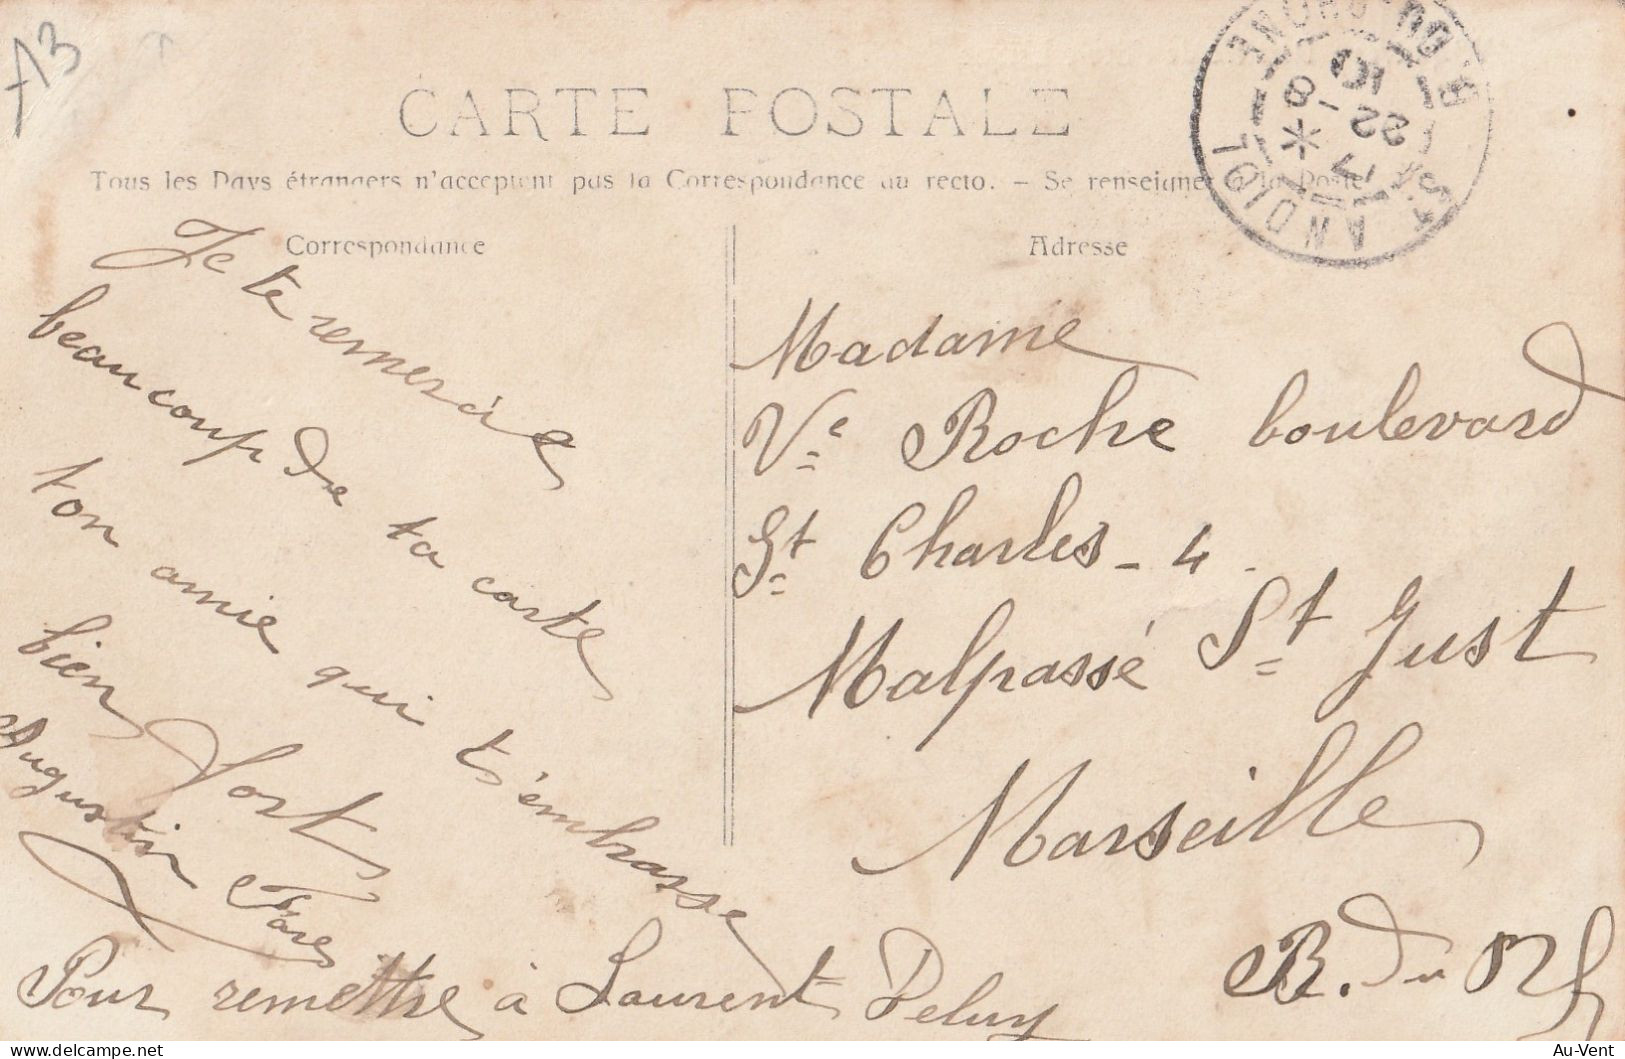 A3
CARTE POSTALE
Tous les Pays étrangers n'acceptent pas la Correspondance au recto. – Se renseigner à la Poste
Correspondance
Je te remercie
beaucoup de ta carte
ton amie qui t'embrasse
bien fort
Augustin
Pour remettre à Laurent Peluy
Adresse
Madame
Ve Roche boulevard
St Charles - 4 -
Malpassé St Just
Marseille
B. du Rh
ST ANDIOL
B. DU RHONE
7 *
22 - 8
10
Au-Vent